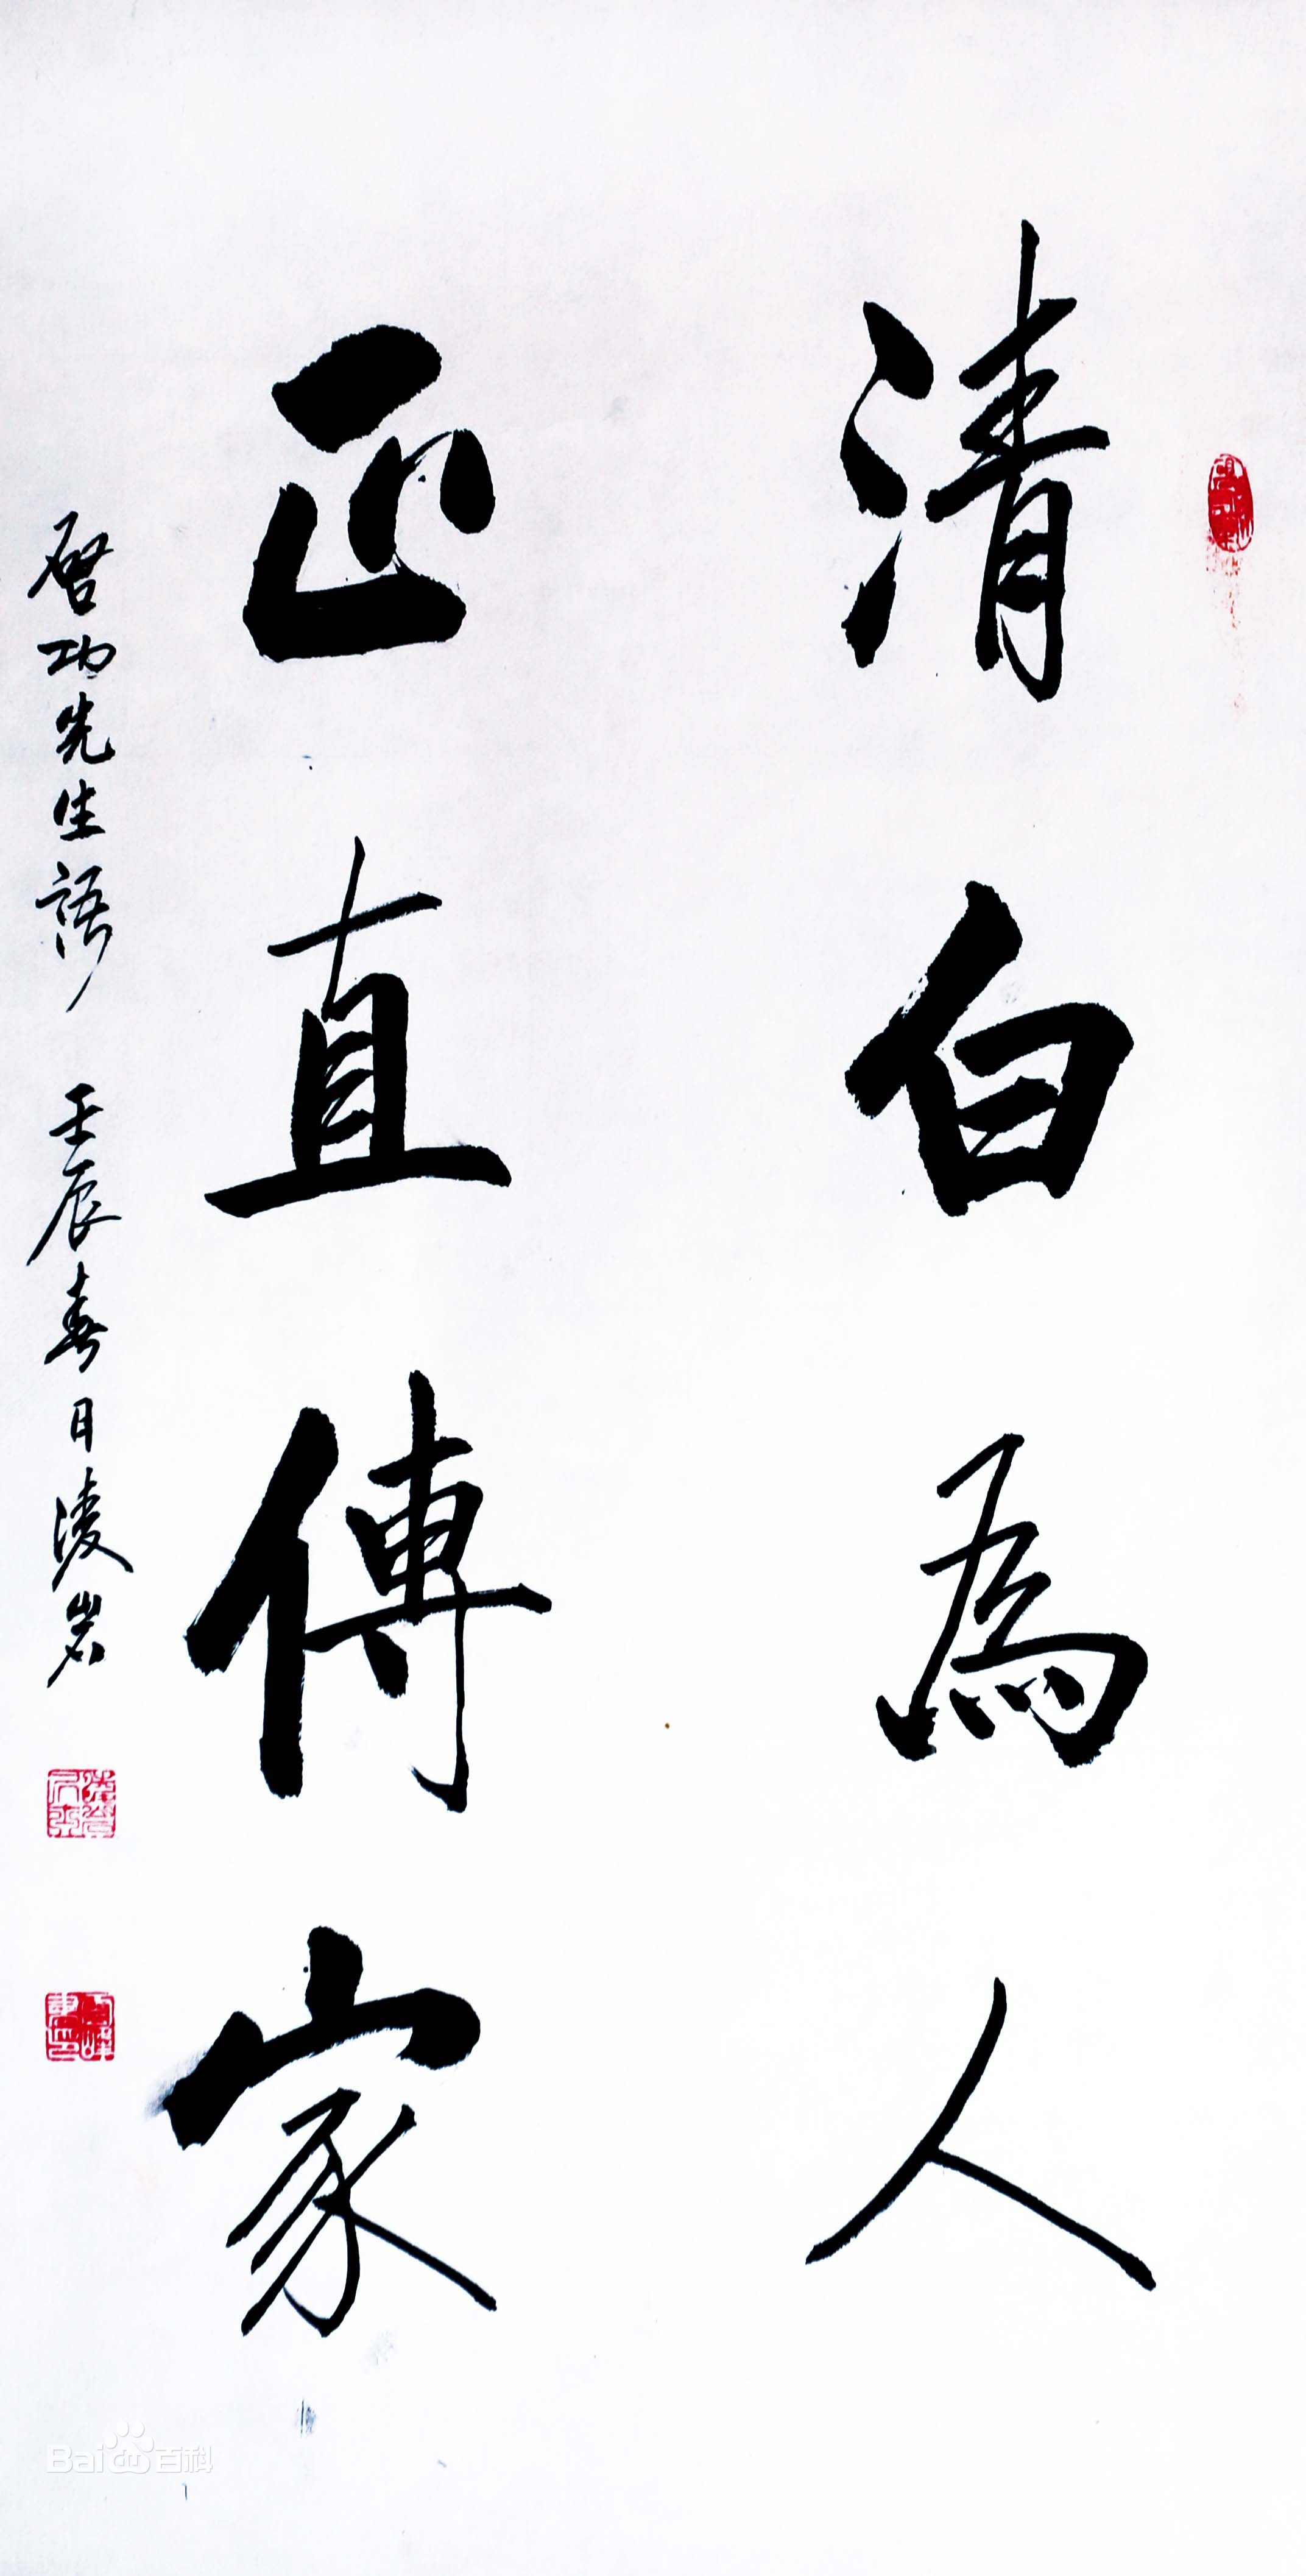 清白為人
正直傳家
啓功先生語 壬辰春日凌岩
Bai du 百科